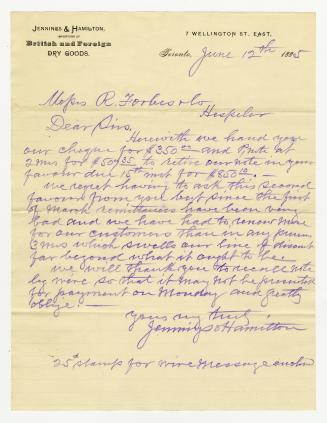 JENNINGS & HAMILTON,
IMPORTERS OF
British and Foreign
DRY GOODS.
7 WELLINGTON ST. EAST,
Toronto, June 12th 1885
Messrs R. Forbes & Co
Hespeler
Dear Sirs,
Herewith we hand you
our cheque for $350 00 and Note at
2 mos for $504 35 to retire our note in your
favour due 15th inst for $850 10. —
We regret having to ask this second
favour from you but since the first
of March remittances have been very
bad and we have had to renew more
for our customers than in any previous
3 mos which swells our line of discount
far beyond what it ought to be
We will thank you to recall note
by wire so that it may not be presented
for payment on Monday and greatly
oblige. —
Yours very truly
Jennings & Hamilton
25¢ stamps for wire message enclosed